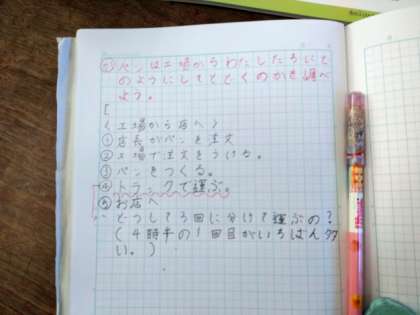 め パンは工場からわたしたちにど
のようにしてとどくのかを調べ
よう。
〈工場から店へ〉
①店長がパンを注文
②工場で注文をうける。
③パンをつくる。
④トラックで運ぶ。
⑤お店へ
どうして3回に分けて運ぶの?
(4時半の1回目がいちばん多
い。)